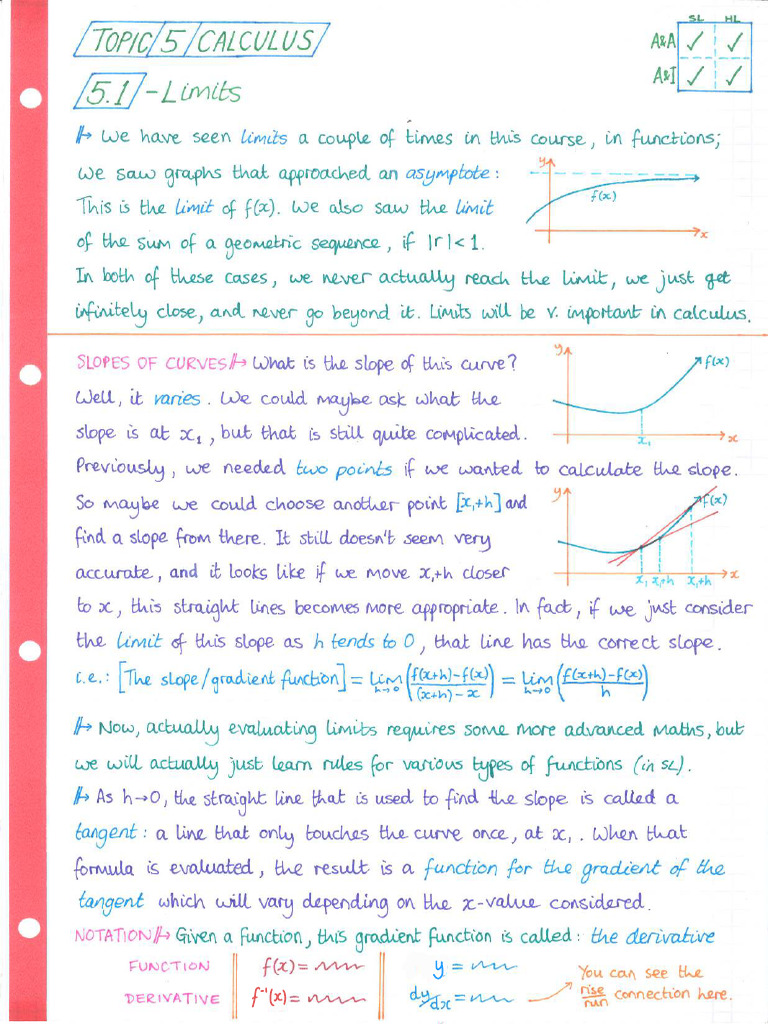 TOPIC 5 CALCULUS
SL HL
A&A ✓ ✓
A&I ✓ ✓
5.1 - Limits
We have seen limits a couple of times in this course, in functions;
we saw graphs that approached an asymptote:
This is the limit of f(x). We also saw the limit
of the sum of a geometric sequence, if |r|<1.
y
f(x)
x
In both of these cases, we never actually reach the limit, we just get
infinitely close, and never go beyond it. Limits will be v. important in calculus.
SLOPES OF CURVES What is the slope of this curve?
Well, it varies. We could maybe ask what the
slope is at x₁, but that is still quite complicated.
y
f(x)
x₁
x
Previously, we needed two points if we wanted to calculate the slope.
So maybe we could choose another point [x₁+h] and
find a slope from there. It still doesn't seem very
accurate, and it looks like if we move x₁+h closer
y
f(x)
x₁ x₁+h x₁+h
x
to x, this straight lines becomes more appropriate. In fact, if we just consider
the limit of this slope as h tends to 0, that line has the correct slope.
i.e.: [The slope/gradient function] = Lim h→0 (f(x+h)-f(x) / (x+h)-x) = Lim h→0 (f(x+h)-f(x) / h)
Now, actually evaluating limits requires some more advanced maths, but
we will actually just learn rules for various types of functions (in SL).
As h→0, the straight line that is used to find the slope is called a
tangent: a line that only touches the curve once, at x₁. When that
formula is evaluated, the result is a function for the gradient of the
tangent which will vary depending on the x-value considered.
NOTATION Given a function, this gradient function is called: the derivative
FUNCTION f(x)= y =
DERIVATIVE f⁻¹(x)= dy/dx =
You can see the
rise/run connection here.